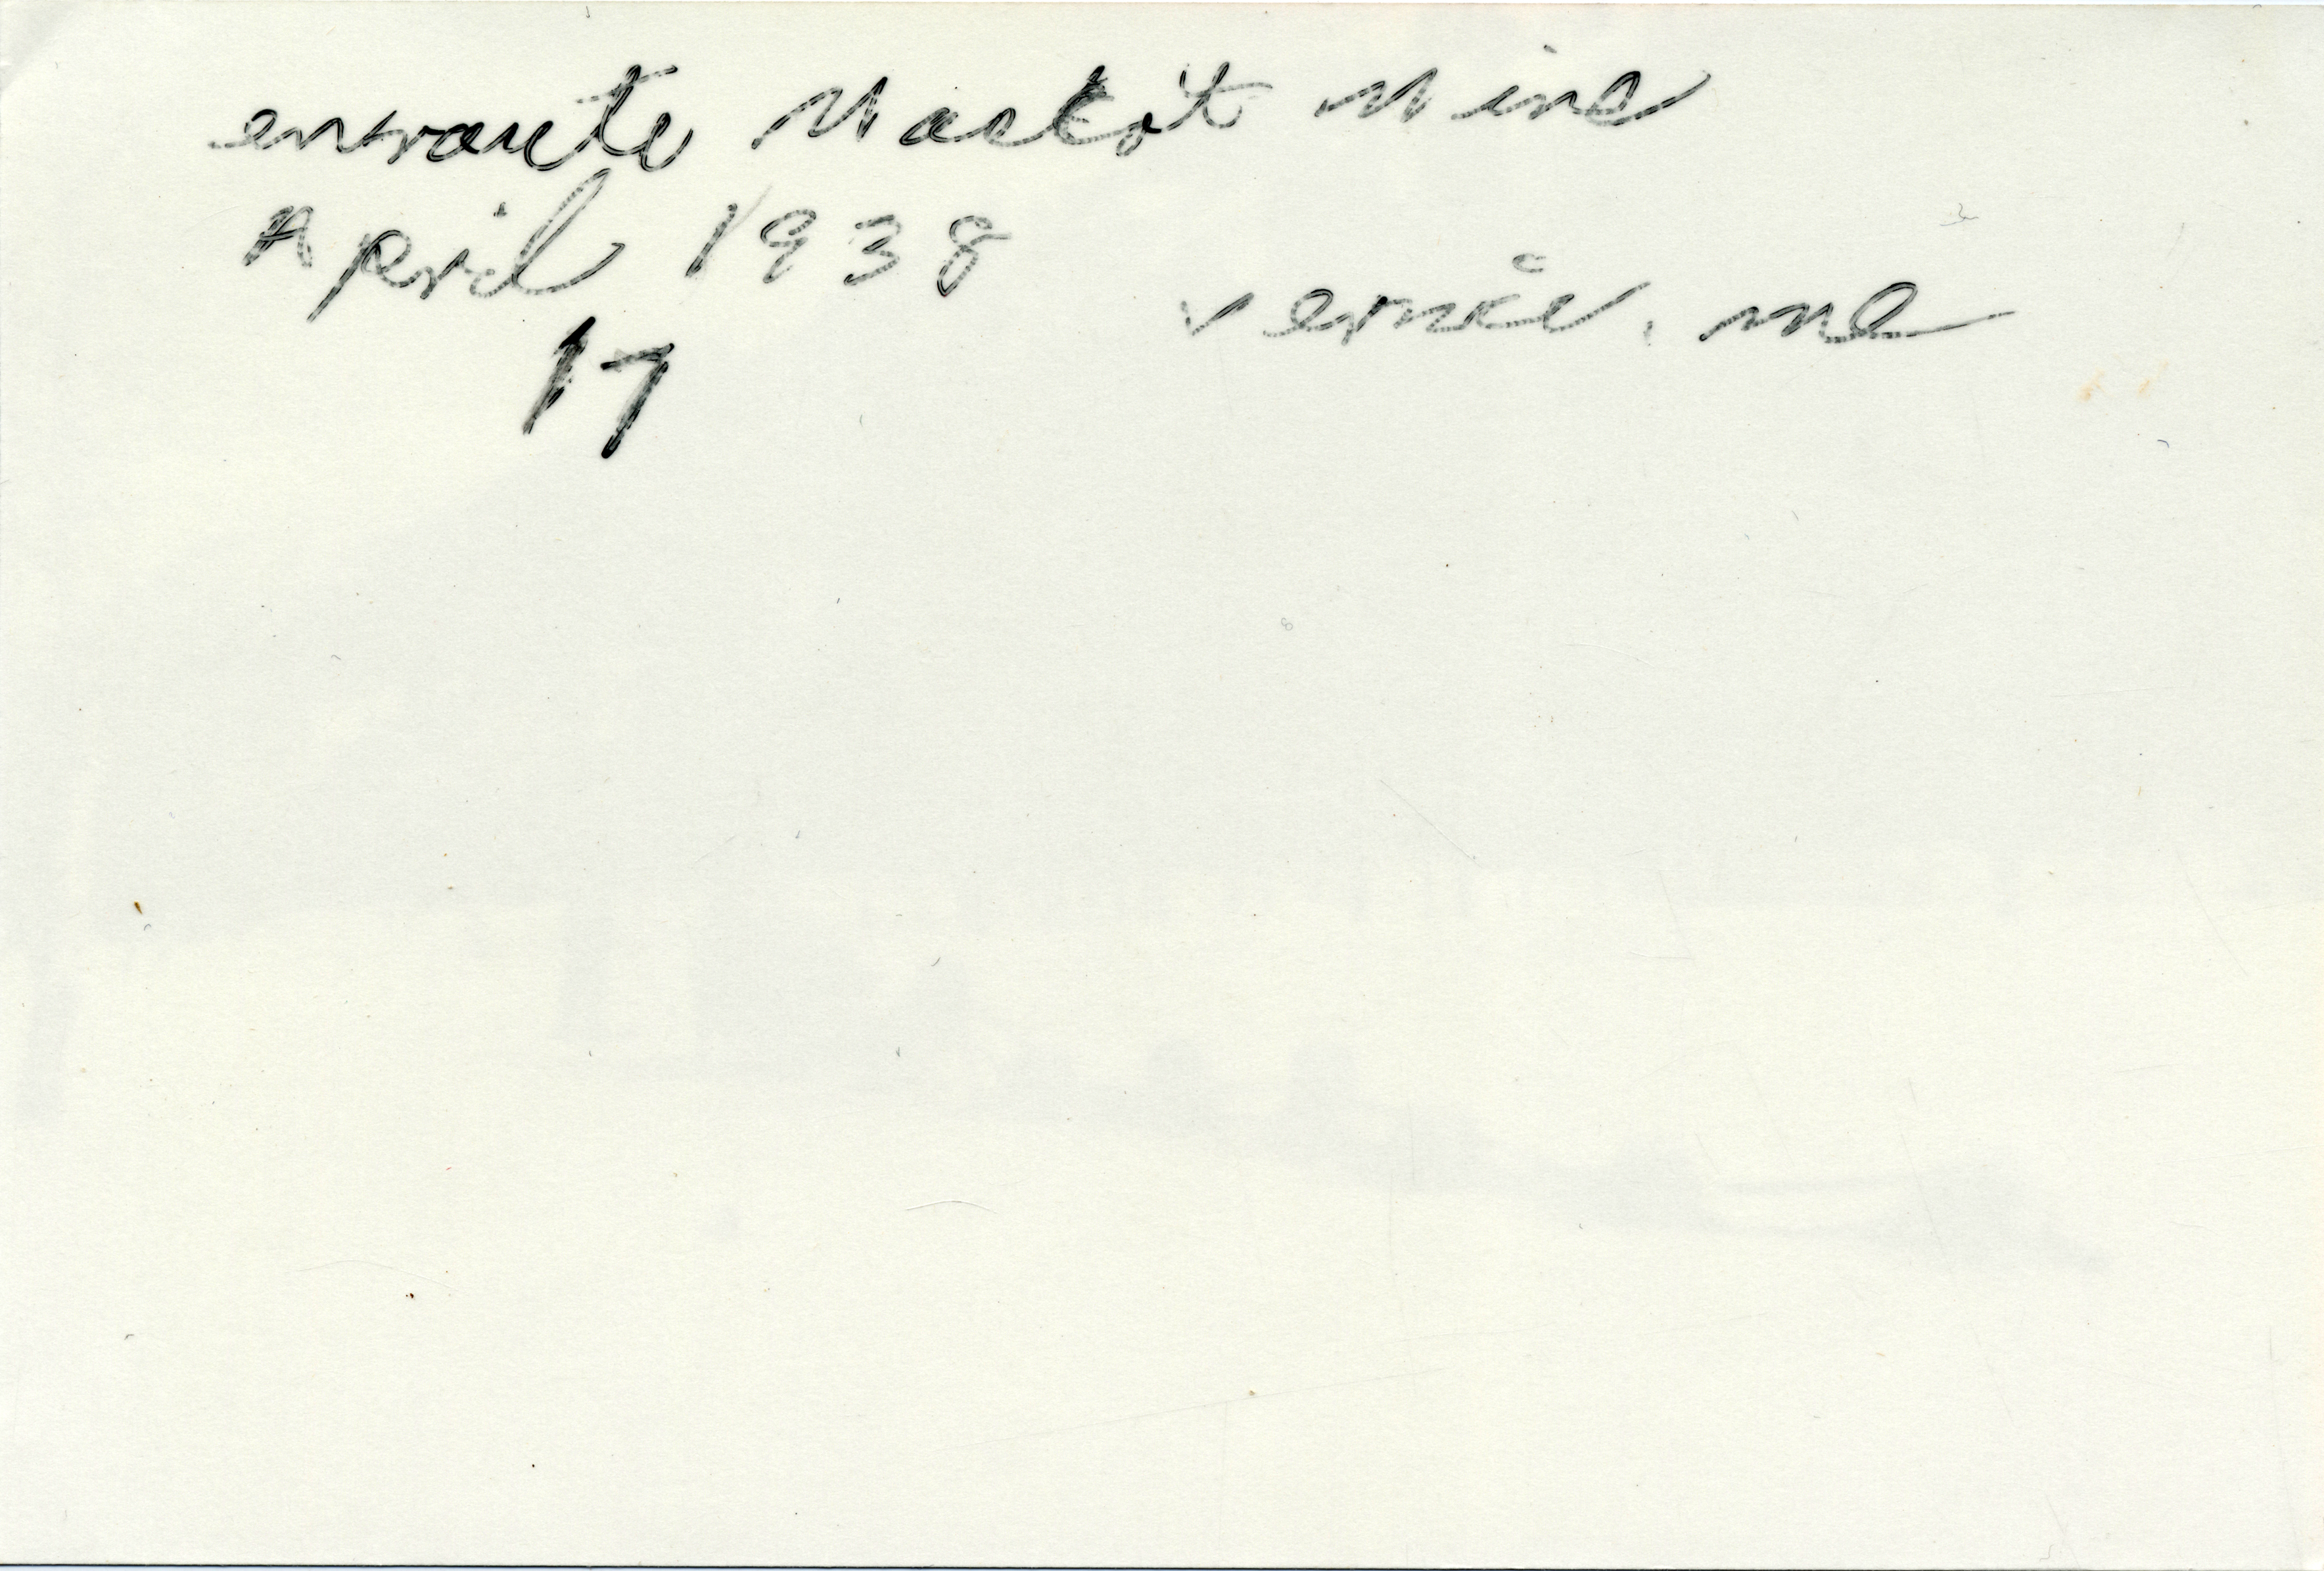 enroute Mascot Mine
April 1938
vernie, me
17